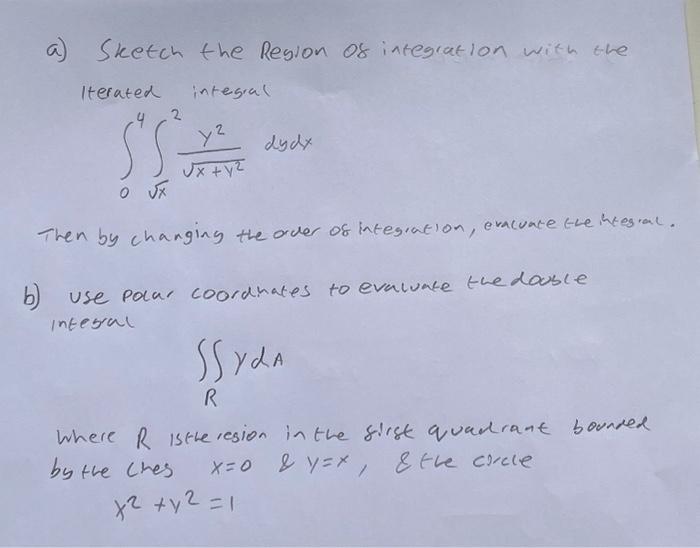 a) Sketch the Region of integration with the
Iterated integral
∫₀⁴ ∫_√x² y² / √x + y² dydx
Then by changing the order of integration, evaluate the integral.
b) use polar coordinates to evaluate the double
integral
∫∫_R y dA
Where R is the region in the first quadrant bounded
by the lines x=0 & y=x, & the circle
x² + y² = 1